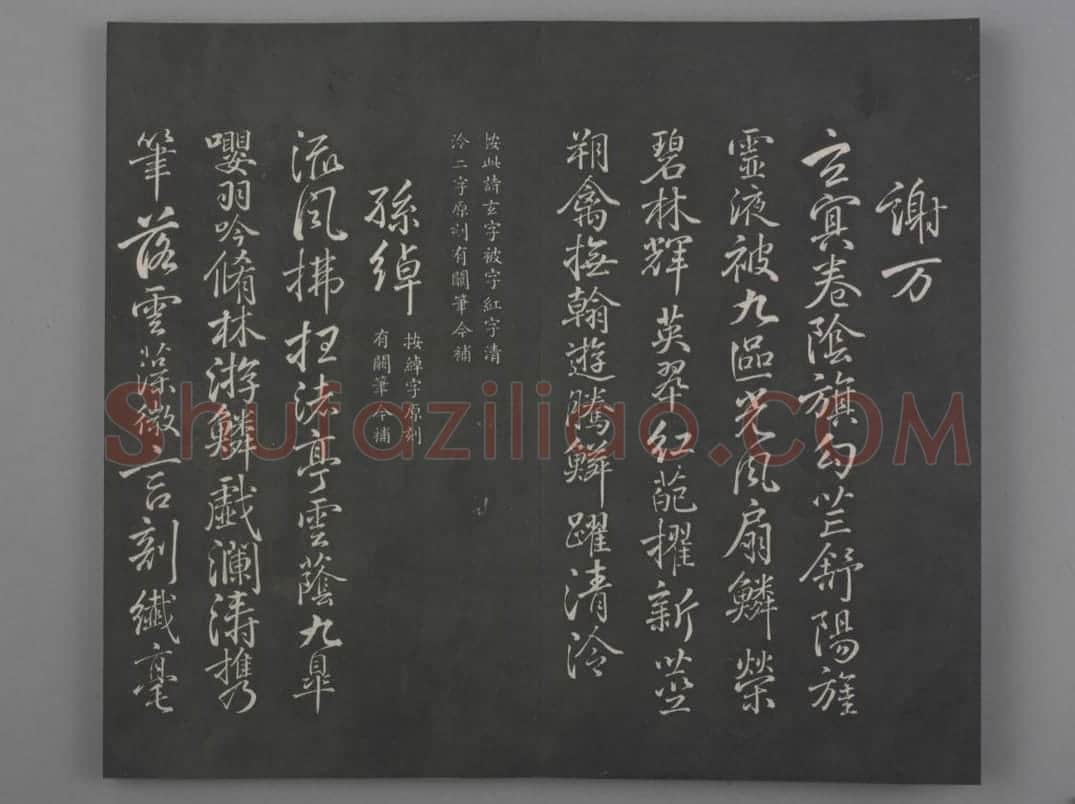 謝万
玄冥卷陰旗勾芒舒陽旌
靈液被九區光風扇鱗榮
碧林輝英翠紅葩擢新莖
朔禽撫翰遊騰鱗躍清泠
按此詩玄字被字紅字清
泠二字原刻有闕筆今補
孫綽
按綽字原刻
有闕筆今補
流風拂枉渚亭雲蔭九皐
嚶羽吟脩林游鱗戲瀾濤攜
筆落雲藻微言剖纖毫
Shufaziliao.COM